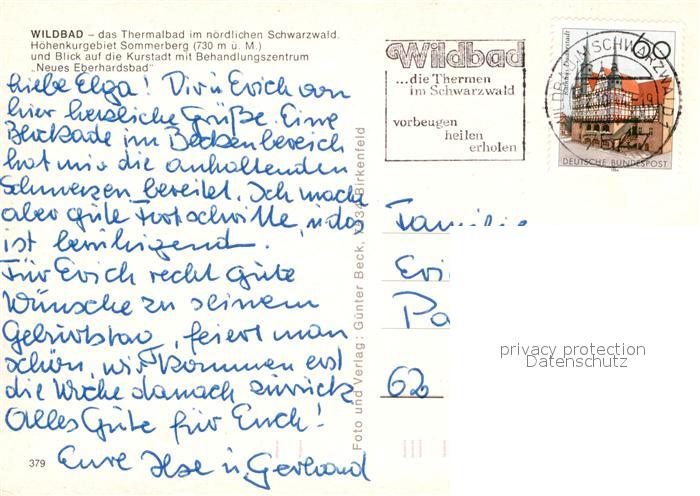 WILDBAD – das Thermalbad im nördlichen Schwarzwald.
Höhenkurgebiet Sommerberg (730 m ü. M.)
und Blick auf die Kurstadt mit Behandlungszentrum
„Neues Eberhardsbad"
Liebe Elga! Dir u Erich von
hier herzliche Grüße. Eine
Blockade im Beckenbereich
hat mir die anhaltenden
Schmerzen bereitet. Ich mache
aber gute Fortschritte, u das
ist beruhigend.
Für Erich recht gute
Wünsche zu seinem
Geburtstag, feiert man
schön, wir kommen erst
die Woche danach zurück
Alles Gute für Euch!
Eure Ilse u Gerhard
379
Foto und Verlag: Günter Beck, 7534 Birkenfeld
Wildbad
...die Thermen
im Schwarzwald
vorbeugen
heilen
erholen
60
WILDBAD IM SCHWARZWALD 1
DEUTSCHE BUNDESPOST
Familie
Eri
Pa
62
privacy protection
Datenschutz